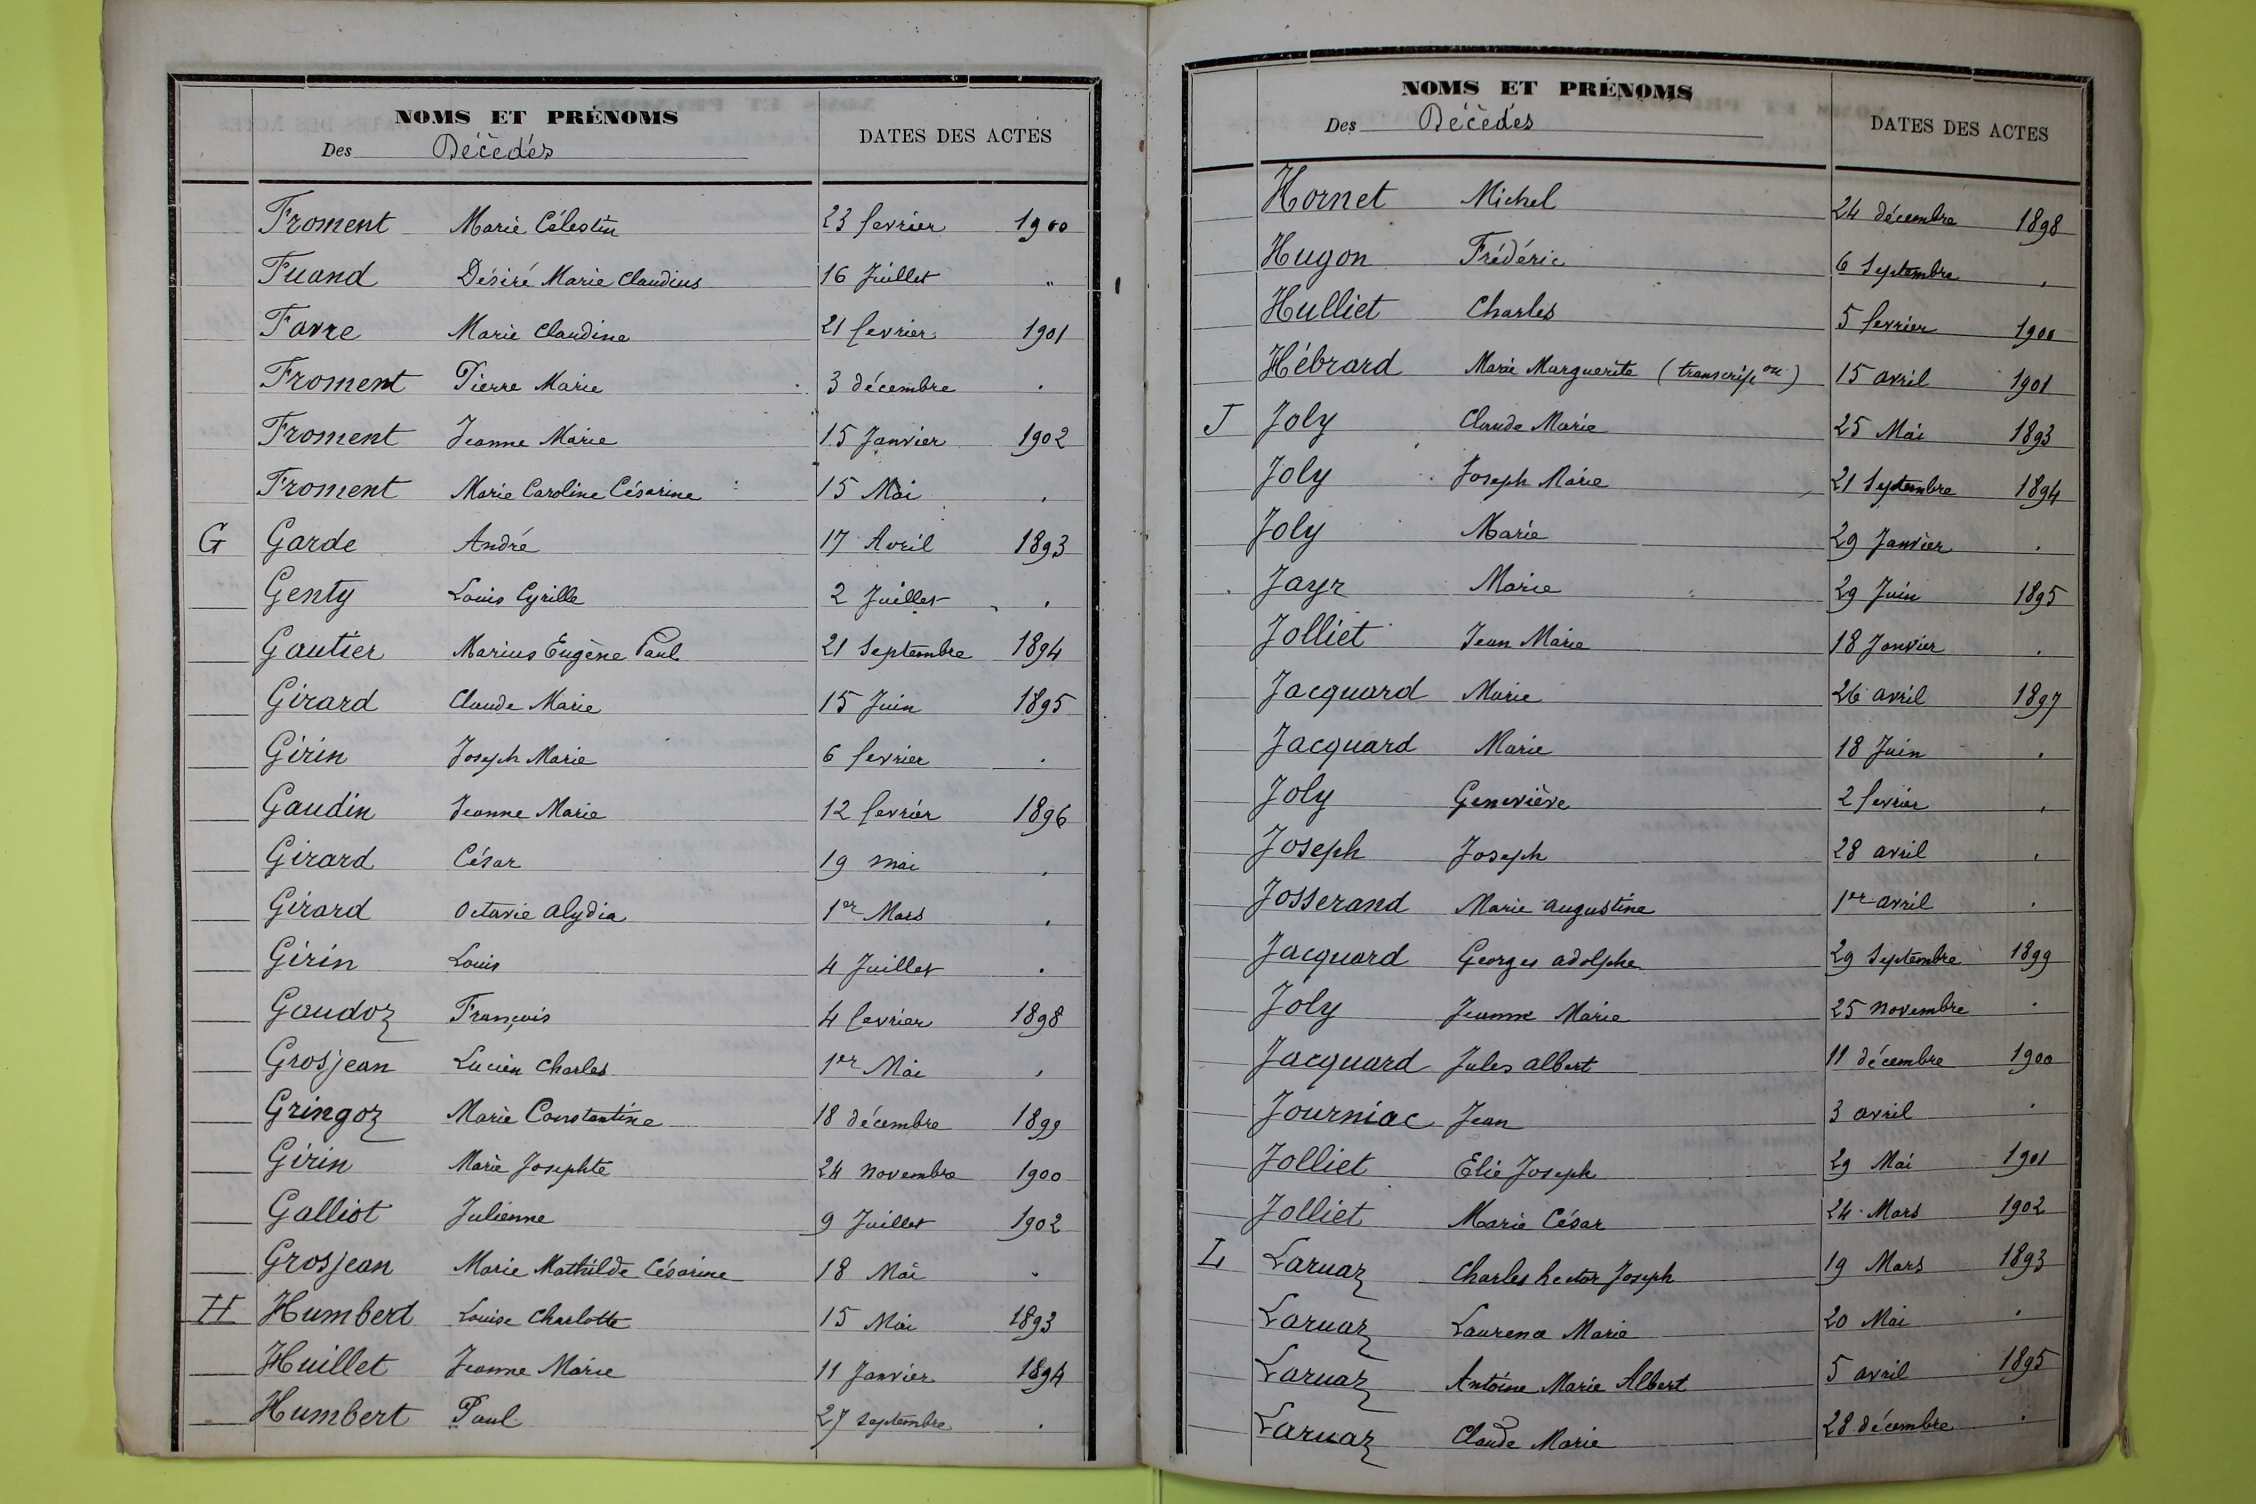 NOMS ET PRÉNOMS
Des Décédés
DATES DES ACTES
Froment Marie Célestin 23 fevrier 1900
Fuand Désiré Marie Claudius 16 Juillet "
Favre Marie Claudine 21 fevrier 1901
Froment Pierre Marie 3 décembre .
Froment Jeanne Marie 15 Janvier 1902
Froment Marie Caroline Césarine 15 Mai .
G Garde André 17 Avril 1893
Genty Louis Cyrille 2 Juillet .
Gautier Marius Eugène Paul 21 Septembre 1894
Girard Claude Marie 15 Juin 1895
Girin Joseph Marie 6 fevrier .
Gaudin Jeanne Marie 12 fevrier 1896
Girard César 19 mai .
Girard Octavie Alydia 1er Mars .
Girin Louis 4 Juillet .
Gaudoz François 4 fevrier 1898
Grosjean Lucien Charles 1er Mai .
Gringoz Marie Constantine 18 décembre 1899
Girin Marie Josephte 24 novembre 1900
Galliot Julienne 9 Juillet 1902
Grosjean Marie Mathilde Césarine 18 Mai .
H Humbert Louise Charlotte 15 Mai 1893
Huillet Jeanne Marie 11 Janvier 1894
Humbert Paul 27 septembre .
NOMS ET PRÉNOMS
Des Décédés
DATES DES ACTES
Hornet Michel 24 décembre 1898
Hugon Frédéric 6 Septembre .
Hulliet Charles 5 fevrier 1900
Hébrard Marie Marguerite (transcripon) 15 avril 1901
J Joly Claude Marie 25 Mai 1893
Joly Joseph Marie 21 Septembre 1894
Joly Marie 29 Janvier .
Jayr Marie 29 Juin 1895
Jolliet Jean Marie 18 Janvier .
Jacquard Marie 26 avril 1897
Jacquard Marie 18 Juin .
Joly Geneviève 2 fevrier .
Joseph Joseph 28 avril .
Josserand Marie augustine 1er avril .
Jacquard Georges adolphe 29 Septembre 1899
Joly Jeanne Marie 25 novembre .
Jacquard Jules albert 11 décembre 1900
Journiac Jean 3 avril .
Jolliet Elie Joseph 29 Mai 1901
Jolliet Marie César 24 Mars 1902
L Laruaz Charles hector Joseph 19 Mars 1893
Laruaz Laurence Marie 20 Mai .
Laruaz Antoine Marie Albert 5 avril 1895
Laruaz Claude Marie 28 décembre .